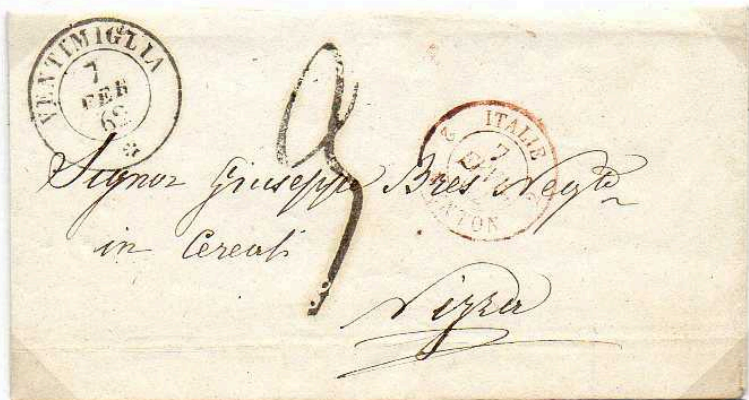 VENTIMIGLIA
7
FEB
62
ITALIE
7
MENTON
Signor Giuseppe Bres Negte
in Cereali
Nizza